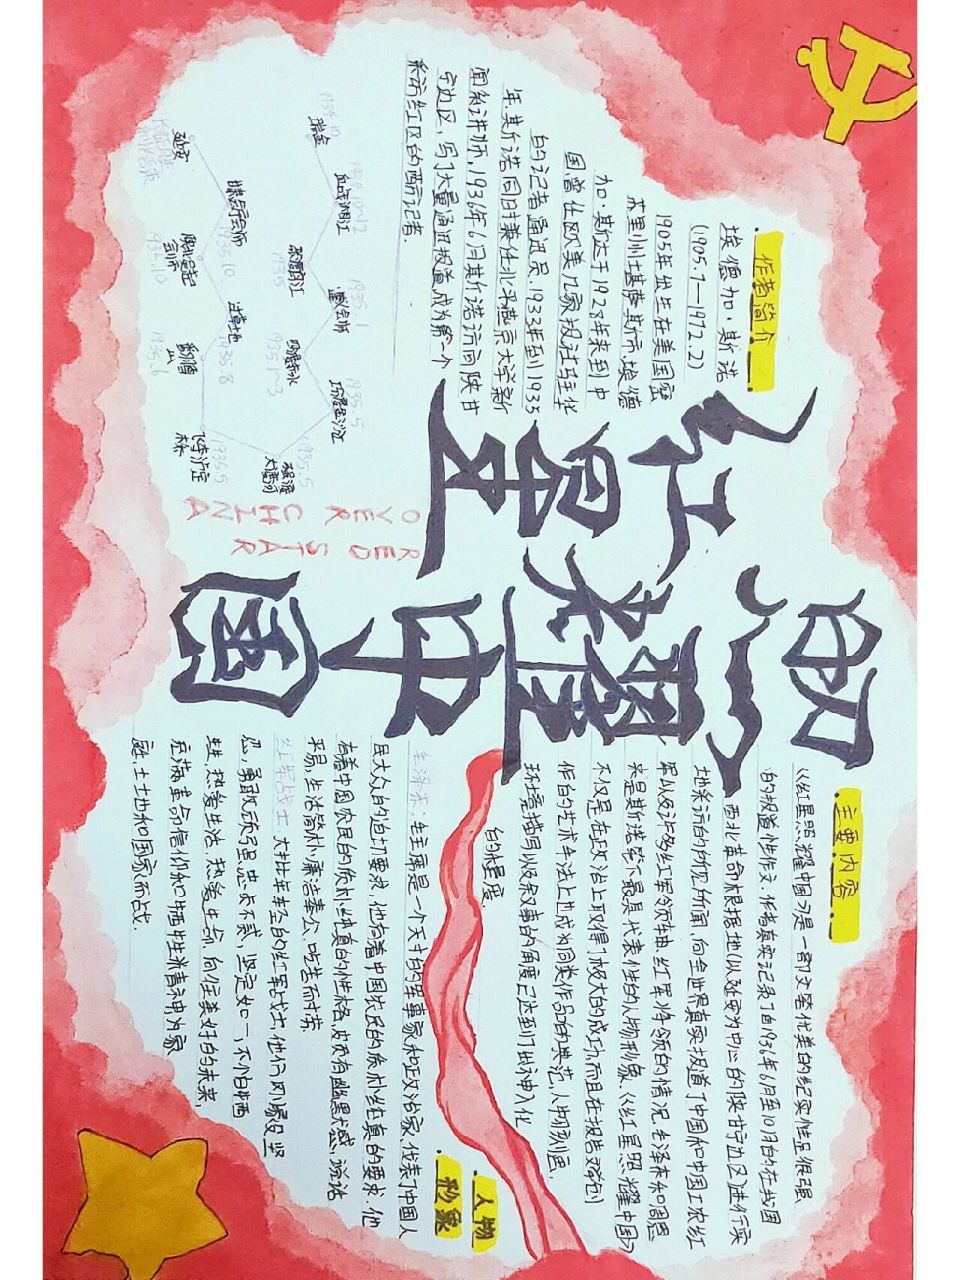 红星
照耀中国
RED STAR
OVER CHINA
作者简介
埃德加·斯诺
(1905.7—1972.2)
1905年出生在美国密
苏里州堪萨斯市,埃德
加·斯诺于1928年来到中
国曾任欧美几家报社驻华
的记者通讯员.1933年至到1935
年,斯诺同时兼任北平燕京大学新
闻系讲师,1936年6月斯诺访问陕甘
宁边区,写了大量通讯报道,成为第一个
采访红区的西方记者.
瑞金
血战湘江
1935.1
遵义会师
1935.5
巧渡金沙江
1935
1935.5
强渡
大渡河
1935.5
飞夺泸定
桥
1935.8
过草地
1935.10
1935.10
1936.6
主要内容
《红星照耀中国》是一部文笔优美的纪实性很强
的报道性作文.作者真实记录了自1936年6月至10月的在我国
西北革命根据地(以延安为中心的陕甘宁边区)进行实
地采访的所见所闻,向全世界真实报道了中国和中国工农红
军以及许多红军领袖、红军将领的情况.毛泽东和周恩
来是斯诺笔下最具代表性的人物形象.《红星照耀中国》
不仅是在政治上取得了极大的成功,而且在报告文学创
作的艺术手法上也成为同类作品的典范,人物刻画,
环境描写以及叙事的角度已达到了出神入化
的程度
人物
形象
毛泽东:毛主席是一个天才的军事家和政治家,代表了中国人
民大众的迫切要求.他有着中国农民的质朴纯真的要求.他
有着中国农民的质朴纯真的性格,颇有幽默感,谈话
平易,生活简朴,廉洁奉公,吃苦而耐劳.
红军战士:大批年轻的红军战士,他们勇敢坚
忍,勇敢顽强,忠贞不贰,坚定如一,不怕牺
牲,热爱生活,热爱生命,向往美好的未来,
充满革命信仰和牺牲精神为家
庭、土地和国家而战.